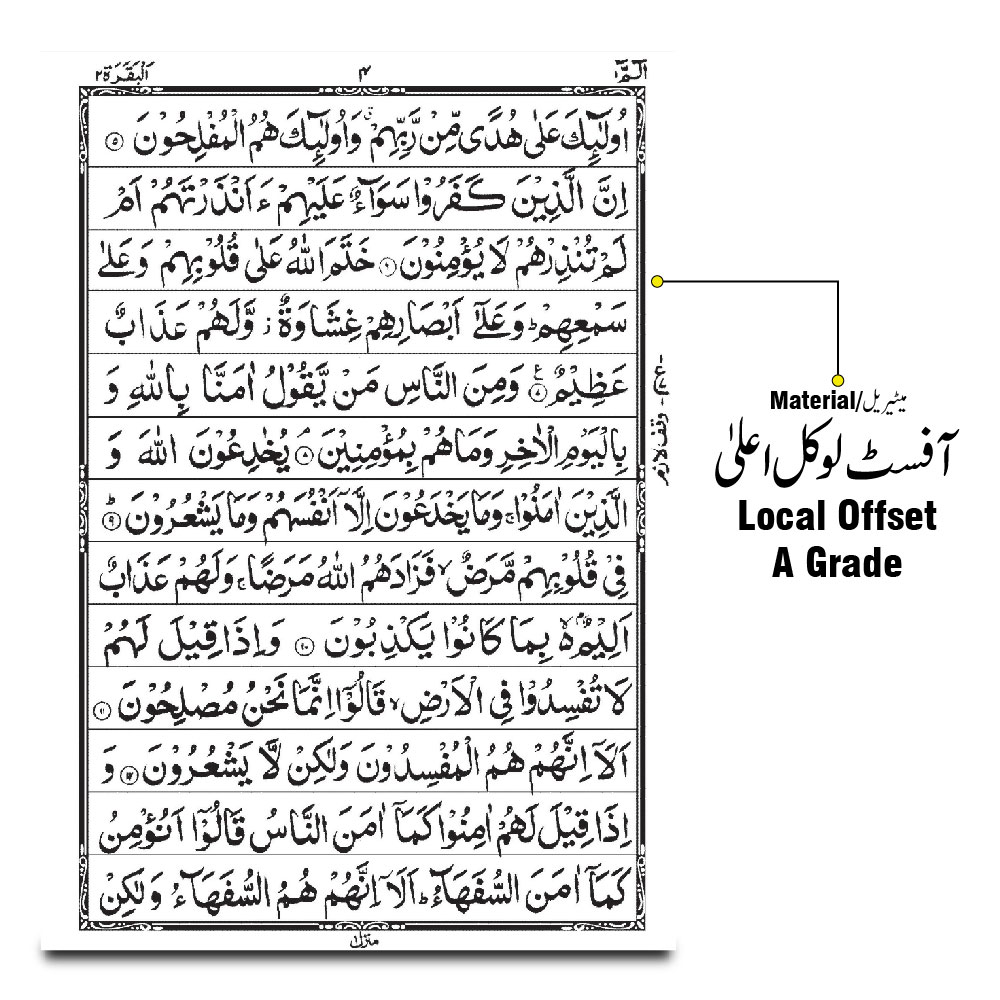 الٓمّٓ ١ ٣ اَلْبَقَرَة ٢
اُولٰٓئِكَ عَلٰى هُدًى مِّنْ رَّبِّهِمْ ۗ وَاُولٰٓئِكَ هُمُ الْمُفْلِحُوْنَ ۝٥
اِنَّ الَّذِيْنَ كَفَرُوْا سَوَآءٌ عَلَيْهِمْ ءَاَنْذَرْتَهُمْ اَمْ
لَمْ تُنْذِرْهُمْ لَا يُؤْمِنُوْنَ ۝٦ خَتَمَ اللّٰهُ عَلٰى قُلُوْبِهِمْ وَعَلٰى
سَمْعِهِمْ ؕ وَعَلٰٓى اَبْصَارِهِمْ غِشَاوَةٌ ز وَّلَهُمْ عَذَابٌ
عَظِيْمٌ ۝٧ ع وَمِنَ النَّاسِ مَنْ يَّقُوْلُ اٰمَنَّا بِاللّٰهِ وَ
بِالْيَوْمِ الْاٰخِرِ وَمَا هُمْ بِمُؤْمِنِيْنَ ۝٨ يُخٰدِعُوْنَ اللّٰهَ وَ
الَّذِيْنَ اٰمَنُوْا ۚ وَمَا يَخْدَعُوْنَ اِلَّاۤ اَنْفُسَهُمْ وَمَا يَشْعُرُوْنَ ؕ ۝٩
فِيْ قُلُوْبِهِمْ مَّرَضٌ ۙ فَزَادَهُمُ اللّٰهُ مَرَضًا ۚ وَلَهُمْ عَذَابٌ
اَلِيْمٌ ۢ ۙ بِمَا كَانُوْا يَكْذِبُوْنَ ۝١٠ وَاِذَا قِيْلَ لَهُمْ
لَا تُفْسِدُوْا فِي الْاَرْضِ ۙ قَالُوْۤا اِنَّمَا نَحْنُ مُصْلِحُوْنَ ۝١١
اَلَاۤ اِنَّهُمْ هُمُ الْمُفْسِدُوْنَ وَلٰكِنْ لَّا يَشْعُرُوْنَ ۝١٢ وَ
اِذَا قِيْلَ لَهُمْ اٰمِنُوْا كَمَاۤ اٰمَنَ النَّاسُ قَالُوْۤا اَنُؤْمِنُ
كَمَاۤ اٰمَنَ السُّفَهَآءُ ؕ اَلَاۤ اِنَّهُمْ هُمُ السُّفَهَآءُ وَلٰكِنْ
منزل ١
وقف لازم
Material/میٹیریل
آفسٹ لوکل اعلیٰ
Local Offset
A Grade